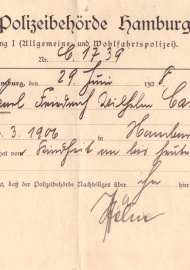 Polizeibehörde Hamburg
ng I (Allgemeine- und Wohlfahrtspolizei).
Nr. C. 1739
mburg, den 29. Juni 192 8.
Karl Friedrich Wilhelm Ca
3. 1906 in Hambur
hat von Kindheit an bis heute
gt, daß der Polizeibehörde Nachteiliges über ihn hier